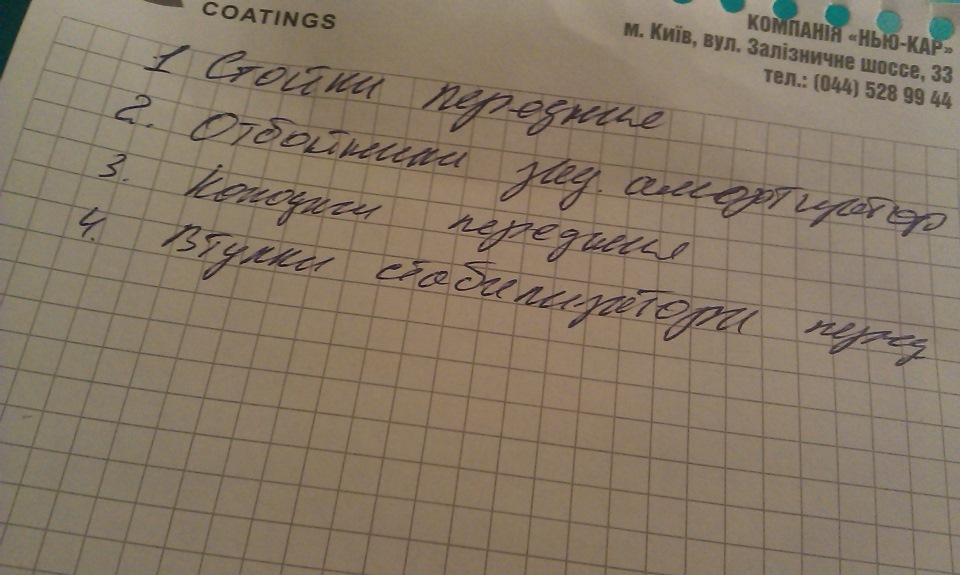 COATINGS
КОМПАНІЯ «НЬЮ-КАР»
м. Київ, вул. Залізничне шоссе, 33
тел.: (044) 528 99 44
1 Стойки передние
2. Отбойники зад. амортизатор
3. Колодки передние
4. Втулки стабилизатора